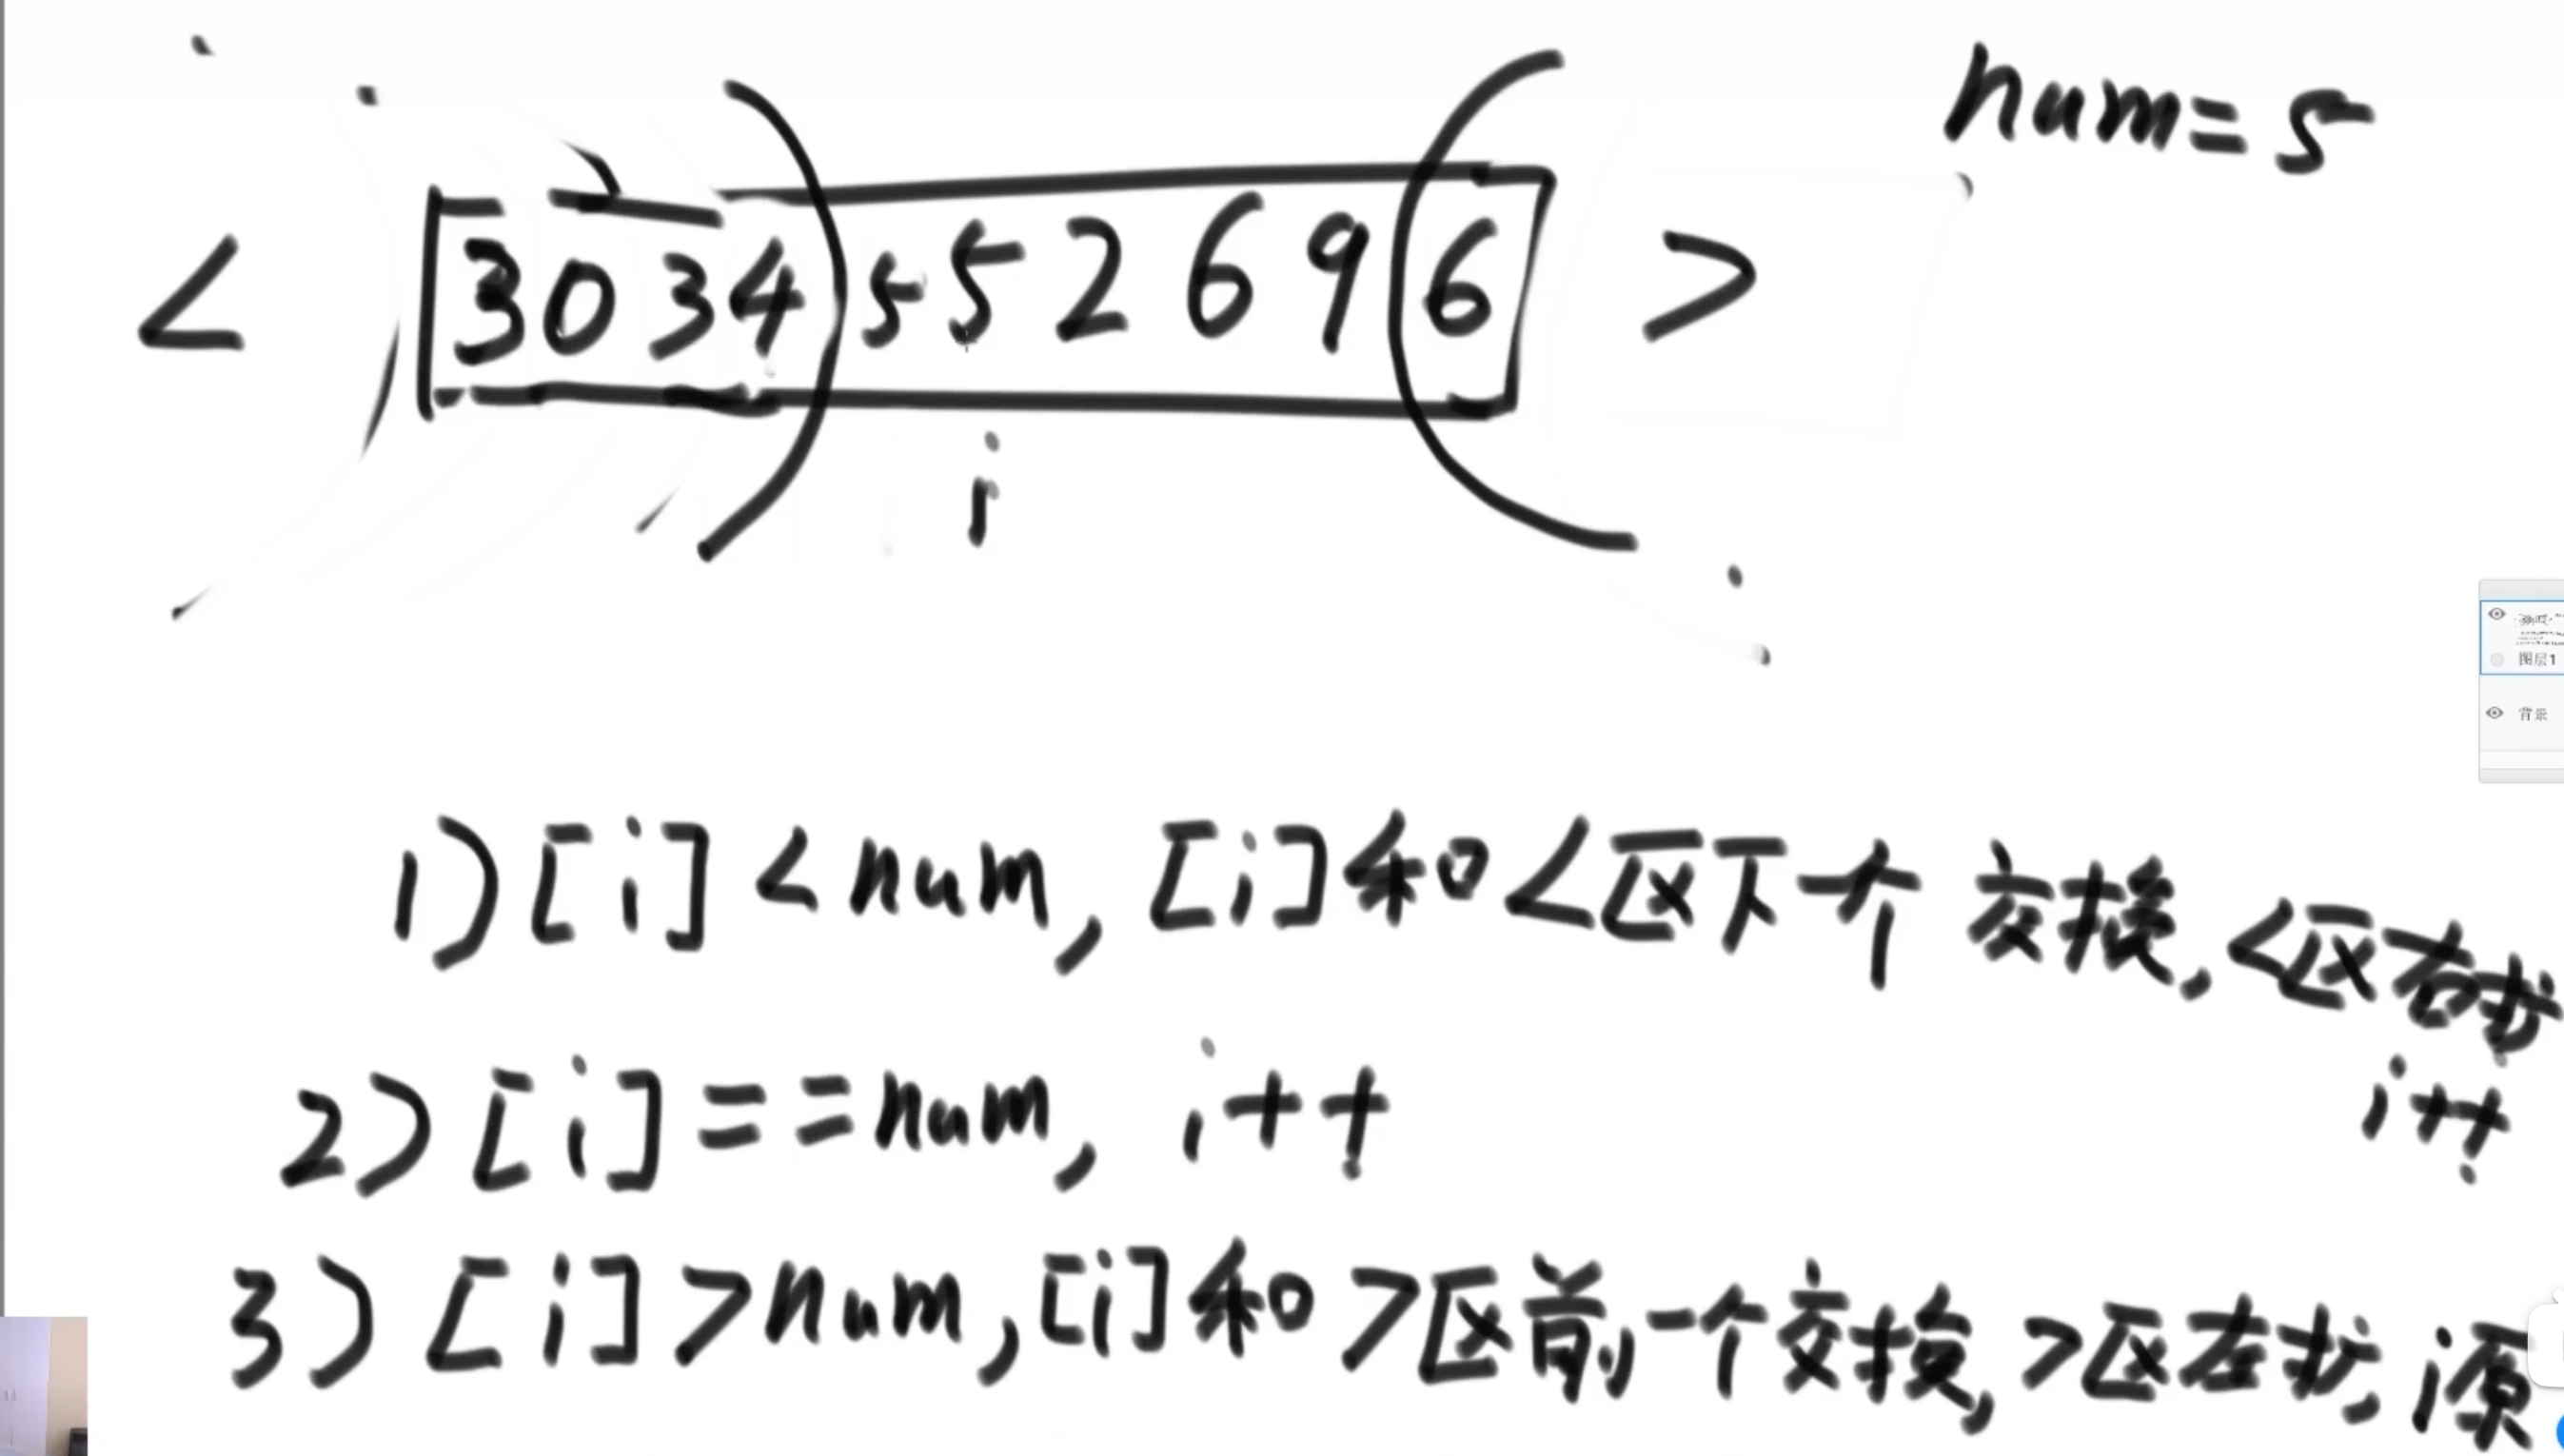 num=5
< 3 0 3 4 ) 5 5 2 6 9 ( 6 >
i
图层1
背景
1) [i] < num, [i]和<区下一个 交换, <区右扩
i++
2) [i] == num, i++
3) [i] > num, [i]和 >区前一个交换, >区左扩, i原